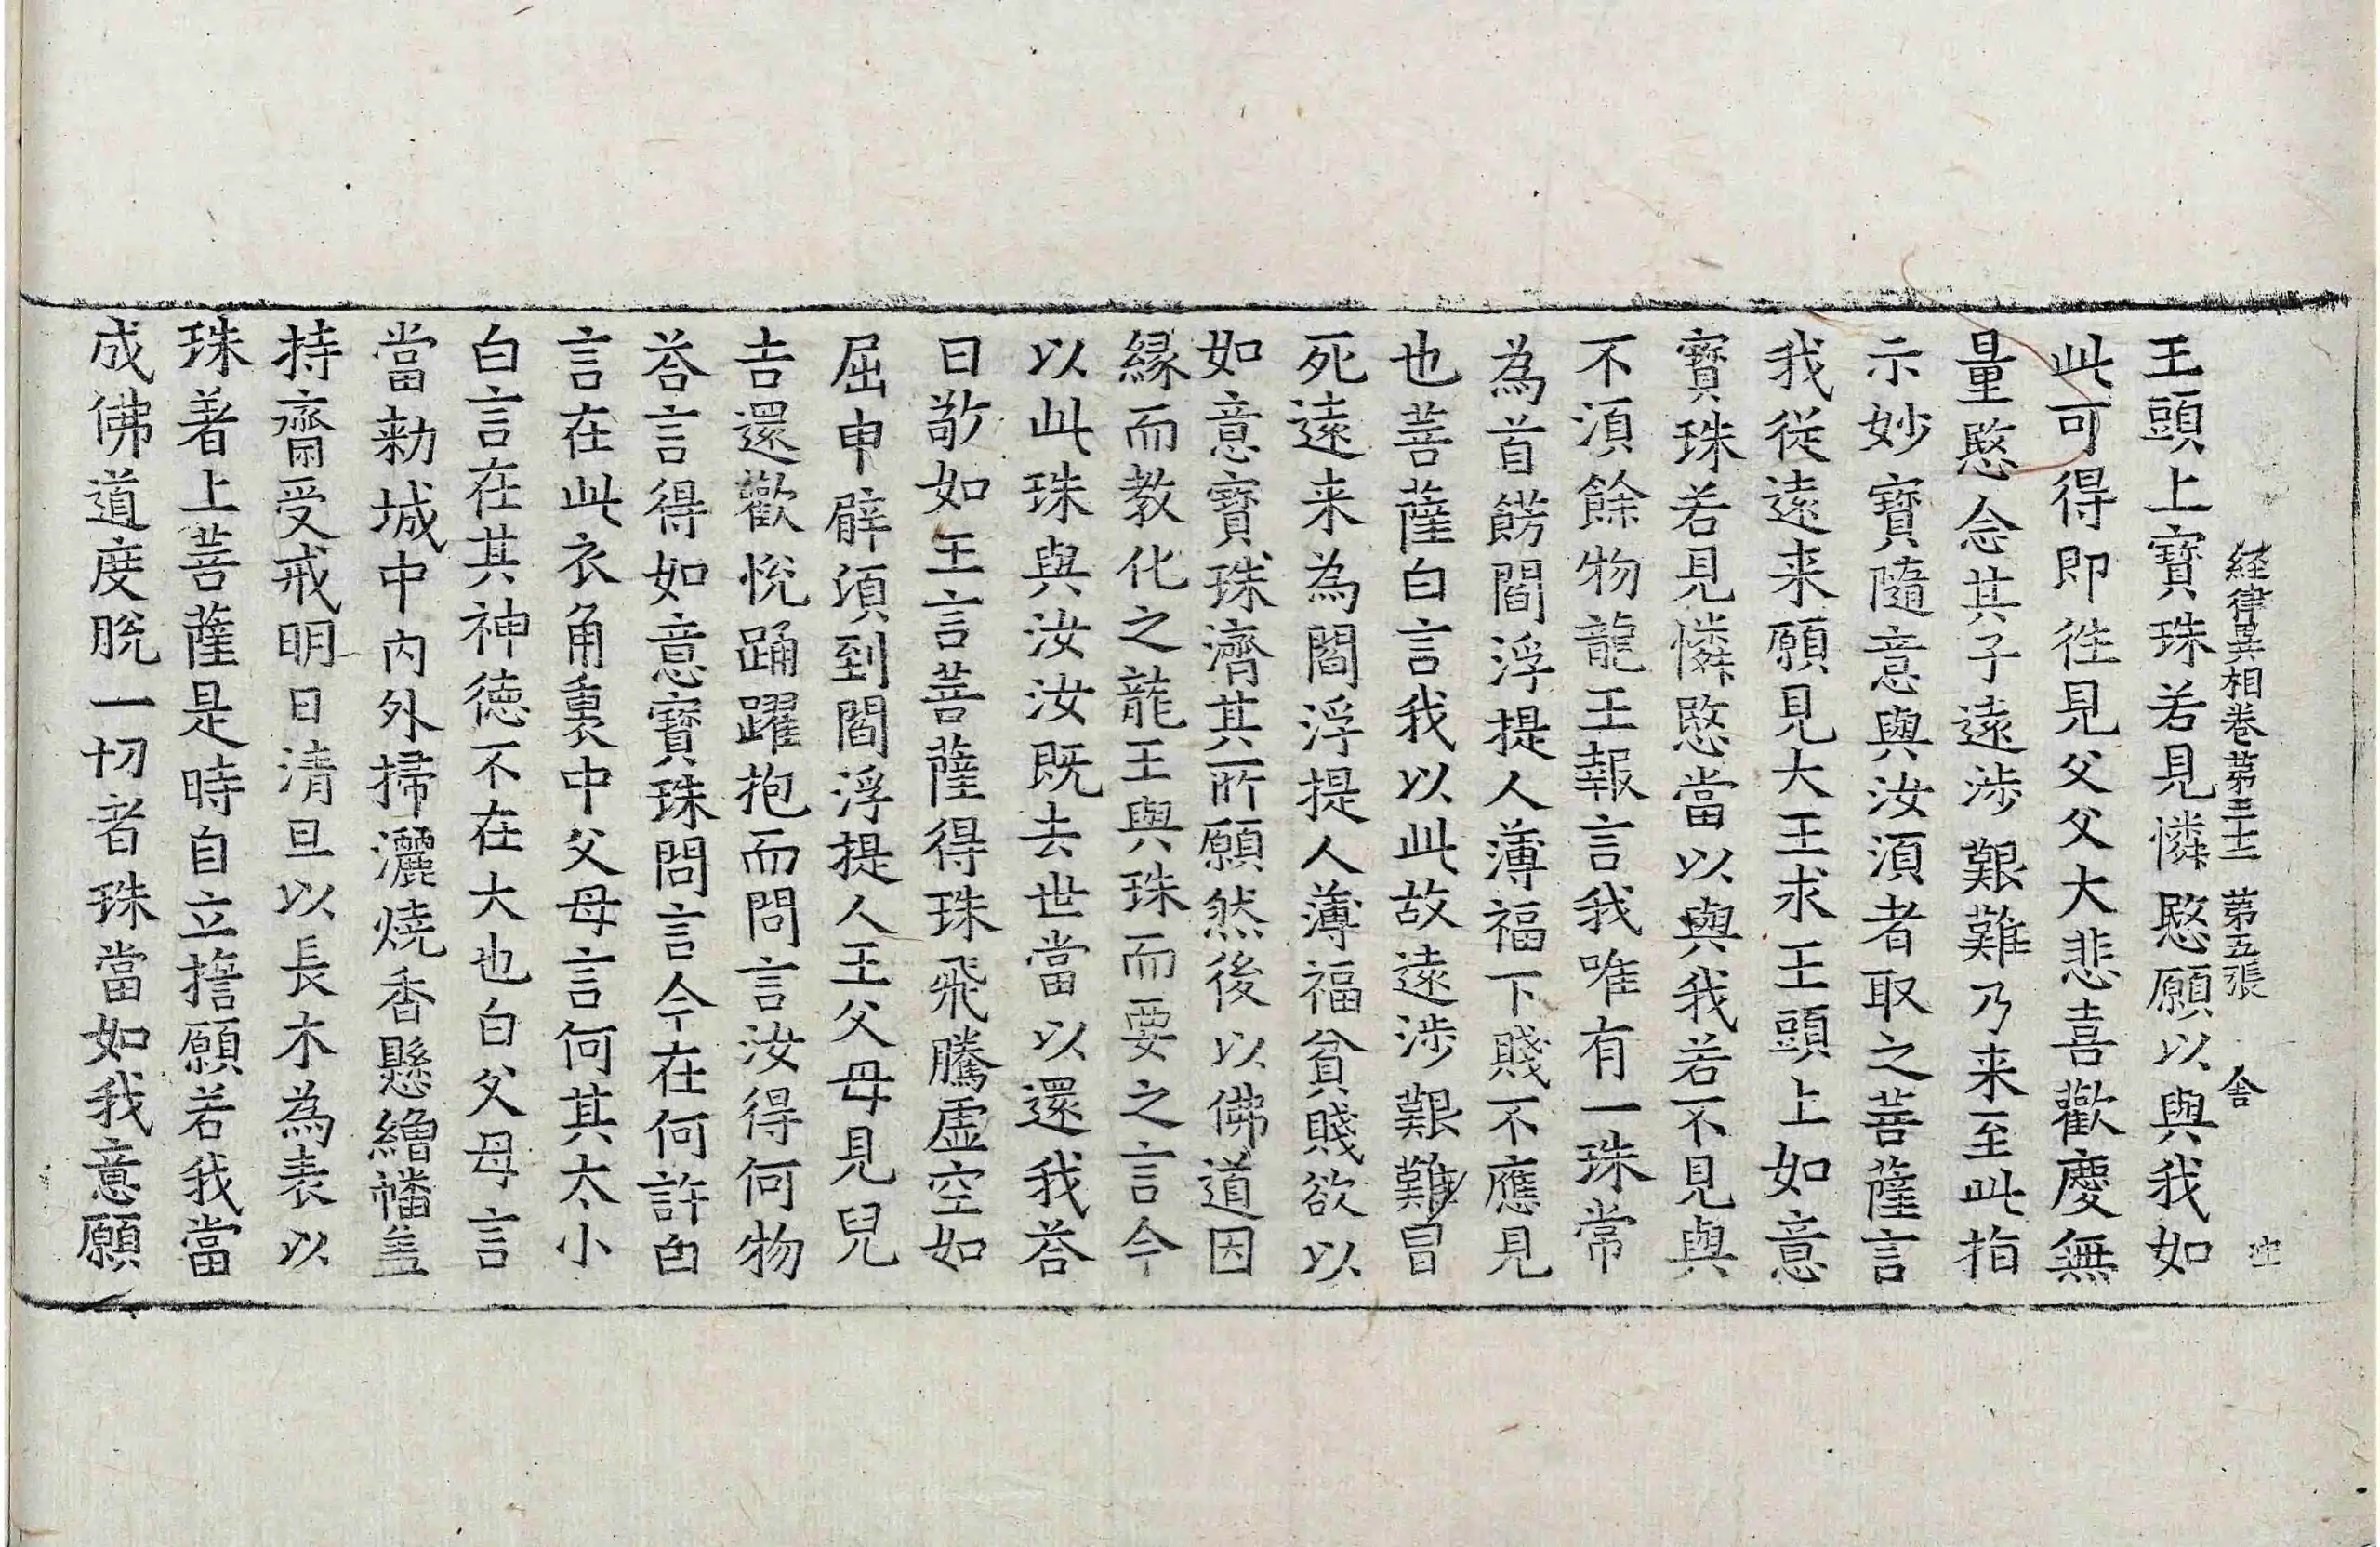 経律異相卷第三十二 第五張 舍
王頭上寶珠若見憐愍願以與我如
此可得即徃見父父大悲喜歡慶無
量愍念其子遠涉艱難乃来至此指
示妙寶隨意與汝須者取之菩薩言
我従遠来願見大王求王頭上如意
寶珠若見憐愍當以與我若不見與
不須餘物龍王報言我唯有一珠常
為首餝閻浮提人薄福下賤不應見
也菩薩白言我以此故遠涉艱難冒
死遠来為閻浮提人薄福貧賤欲以
如意寶珠濟其所願然後以佛道因
縁而教化之龍王與珠而要之言今
以此珠與汝汝既去世當以還我荅
曰敬如王言菩薩得珠飛騰虛空如
屈申臂須到閻浮提人王父母見兒
吉還歡悅踊躍抱而問言汝得何物
荅言得如意寶珠問言今在何許白
言在此衣角裏中父母言何其太小
白言在其神徳不在大也白父母言
當勑城中内外掃灑燒香懸繒幡盖
持齋受戒明日清旦以長木為表以
珠著上菩薩是時自立擔願若我當
成佛道度脫一切者珠當如我意願